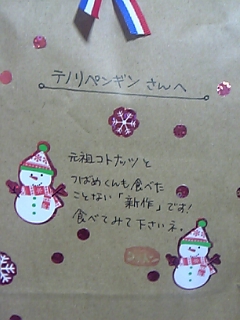 テノリペンギン さんへ
元祖コトナッツと
つばめくんも食べた
ことない「新作」です!
食べてみて下さいネ。